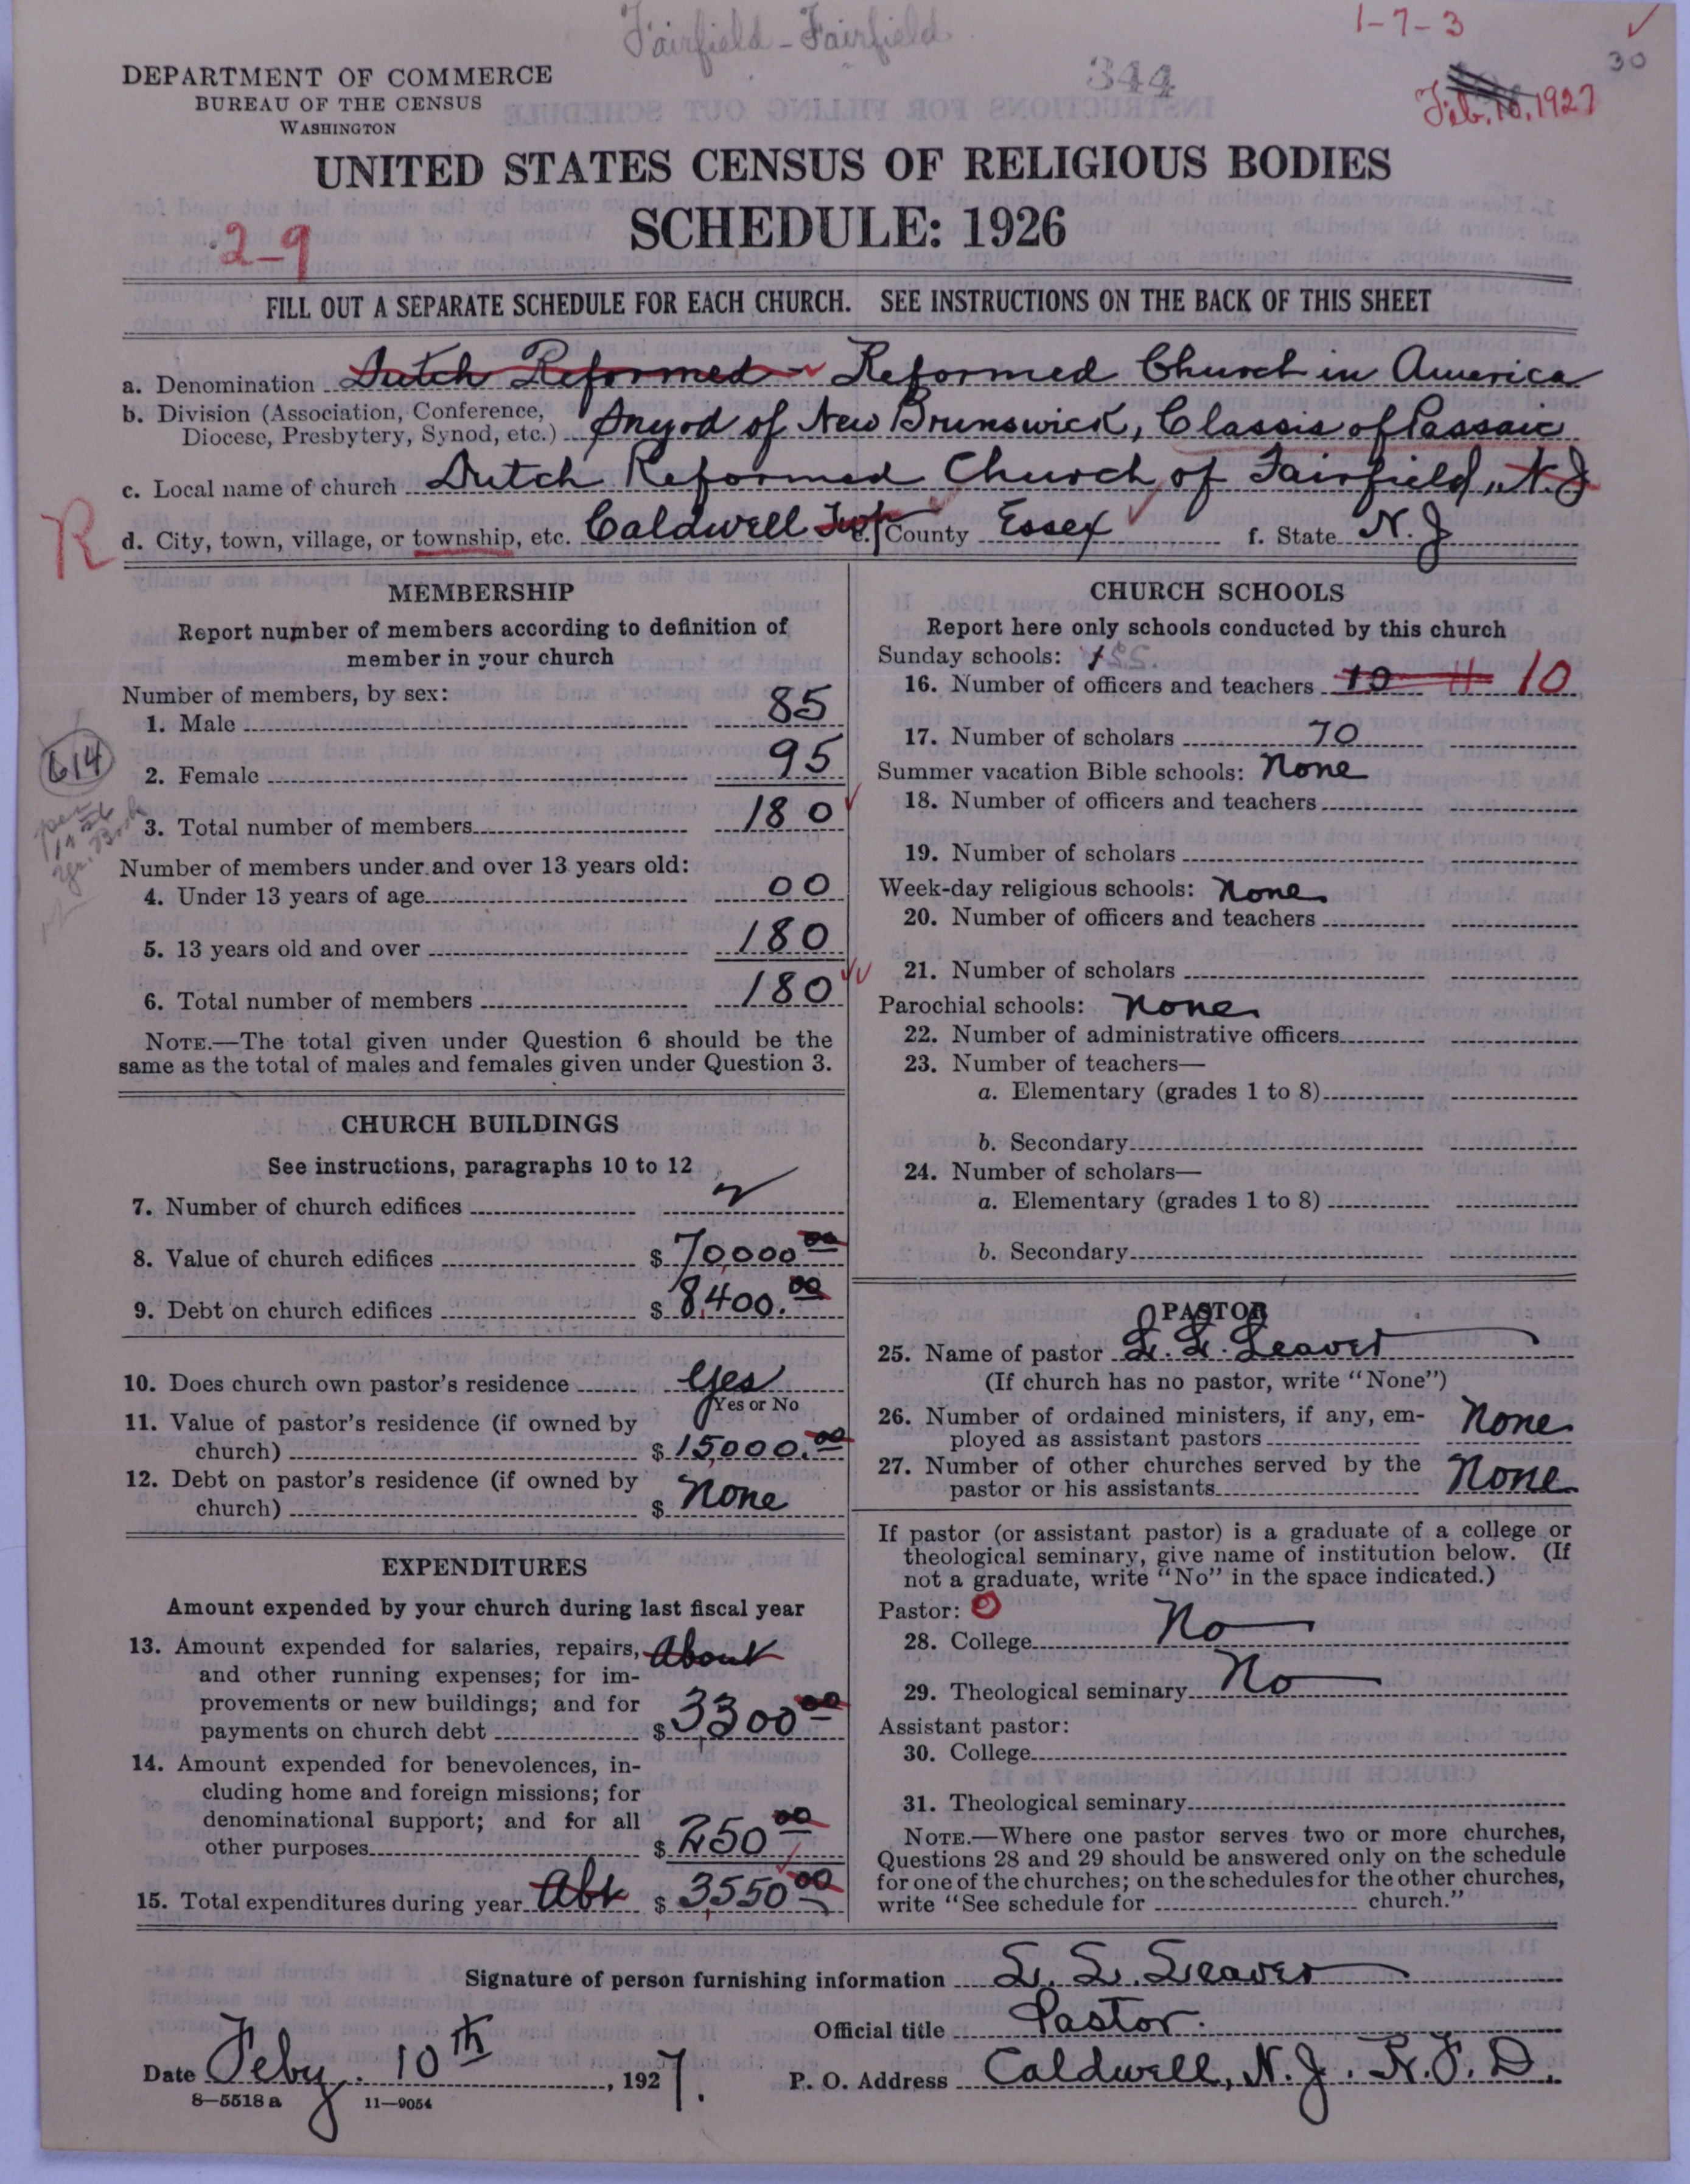 Fairfield - Fairfield
1-7-3
30
344
Feb. 10, 1927
DEPARTMENT OF COMMERCE
BUREAU OF THE CENSUS
WASHINGTON
UNITED STATES CENSUS OF RELIGIOUS BODIES
SCHEDULE: 1926
2-9
FILL OUT A SEPARATE SCHEDULE FOR EACH CHURCH. SEE INSTRUCTIONS ON THE BACK OF THIS SHEET
a. Denomination Dutch Reformed - Reformed Church in America
b. Division (Association, Conference,
Diocese, Presbytery, Synod, etc.) Synod of New Brunswick, Classis of Passaic
c. Local name of church Dutch Reformed Church of Fairfield, N.J
R
d. City, town, village, or township, etc. Caldwell Twp e. County Essex f. State N.J
MEMBERSHIP
Report number of members according to definition of
member in your church
Number of members, by sex:
1. Male 85
614
2. Female 95
3. Total number of members 180
Number of members under and over 13 years old:
4. Under 13 years of age 00
5. 13 years old and over 180
6. Total number of members 180
NOTE.—The total given under Question 6 should be the
same as the total of males and females given under Question 3.
CHURCH BUILDINGS
See instructions, paragraphs 10 to 12
7. Number of church edifices
8. Value of church edifices $ 70,000 00
9. Debt on church edifices $ 8,400. 00
10. Does church own pastor's residence Yes
Yes or No
11. Value of pastor's residence (if owned by
church) $ 15,000. 00
12. Debt on pastor's residence (if owned by
church) $ None
EXPENDITURES
Amount expended by your church during last fiscal year
13. Amount expended for salaries, repairs, About
and other running expenses; for im-
provements or new buildings; and for
payments on church debt $ 3,300 00
14. Amount expended for benevolences, in-
cluding home and foreign missions; for
denominational support; and for all
other purposes $ 250 00
15. Total expenditures during year Abt $ 3,550 00
CHURCH SCHOOLS
Report here only schools conducted by this church
Sunday schools:
16. Number of officers and teachers 10 11 10
17. Number of scholars 70
Summer vacation Bible schools: None
18. Number of officers and teachers
19. Number of scholars
Week-day religious schools: None
20. Number of officers and teachers
21. Number of scholars
Parochial schools: None
22. Number of administrative officers
23. Number of teachers—
a. Elementary (grades 1 to 8)
b. Secondary
24. Number of scholars—
a. Elementary (grades 1 to 8)
b. Secondary
PASTOR
25. Name of pastor L. L. Leaver
(If church has no pastor, write "None")
26. Number of ordained ministers, if any, em-
ployed as assistant pastors None
27. Number of other churches served by the
pastor or his assistants None
If pastor (or assistant pastor) is a graduate of a college or
theological seminary, give name of institution below. (If
not a graduate, write "No" in the space indicated.)
Pastor: O
28. College No
29. Theological seminary No
Assistant pastor:
30. College
31. Theological seminary
NOTE.—Where one pastor serves two or more churches,
Questions 28 and 29 should be answered only on the schedule
for one of the churches; on the schedules for the other churches,
write "See schedule for church."
Signature of person furnishing information L. L. Leaver
Official title Pastor.
Date Feby. 10th, 1927.
P. O. Address Caldwell, N.J. R.F.D.
8—5518 a 11—9054